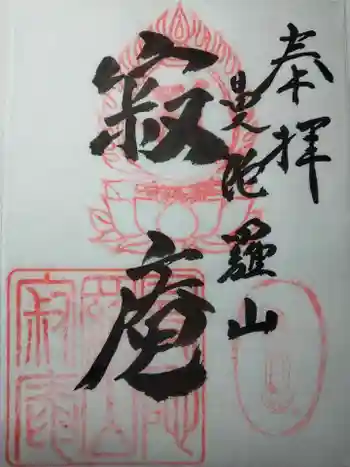 奉拝
曼陀羅山
寂庵